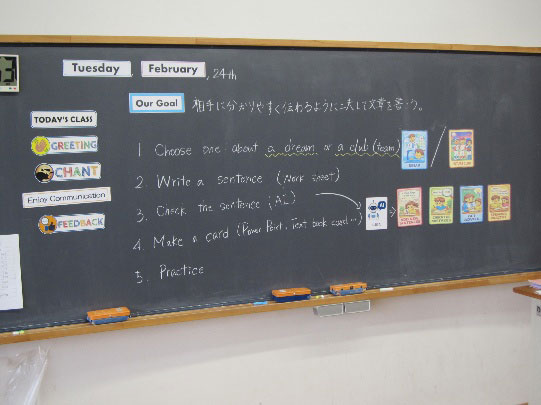 Tuesday, February, 24th
Our Goal 相手に分かりやすく伝わるように工夫して文章を書こう。
TODAY'S CLASS
GREETING
CHANT
Enjoy Communication
FEEDBACK
1. Choose one about a dream or a club (team)
2. Write a sentence (Work sheet)
3. Check the sentence (AI)
4. Make a card (Power Point, Text book card...)
5. Practice
AI